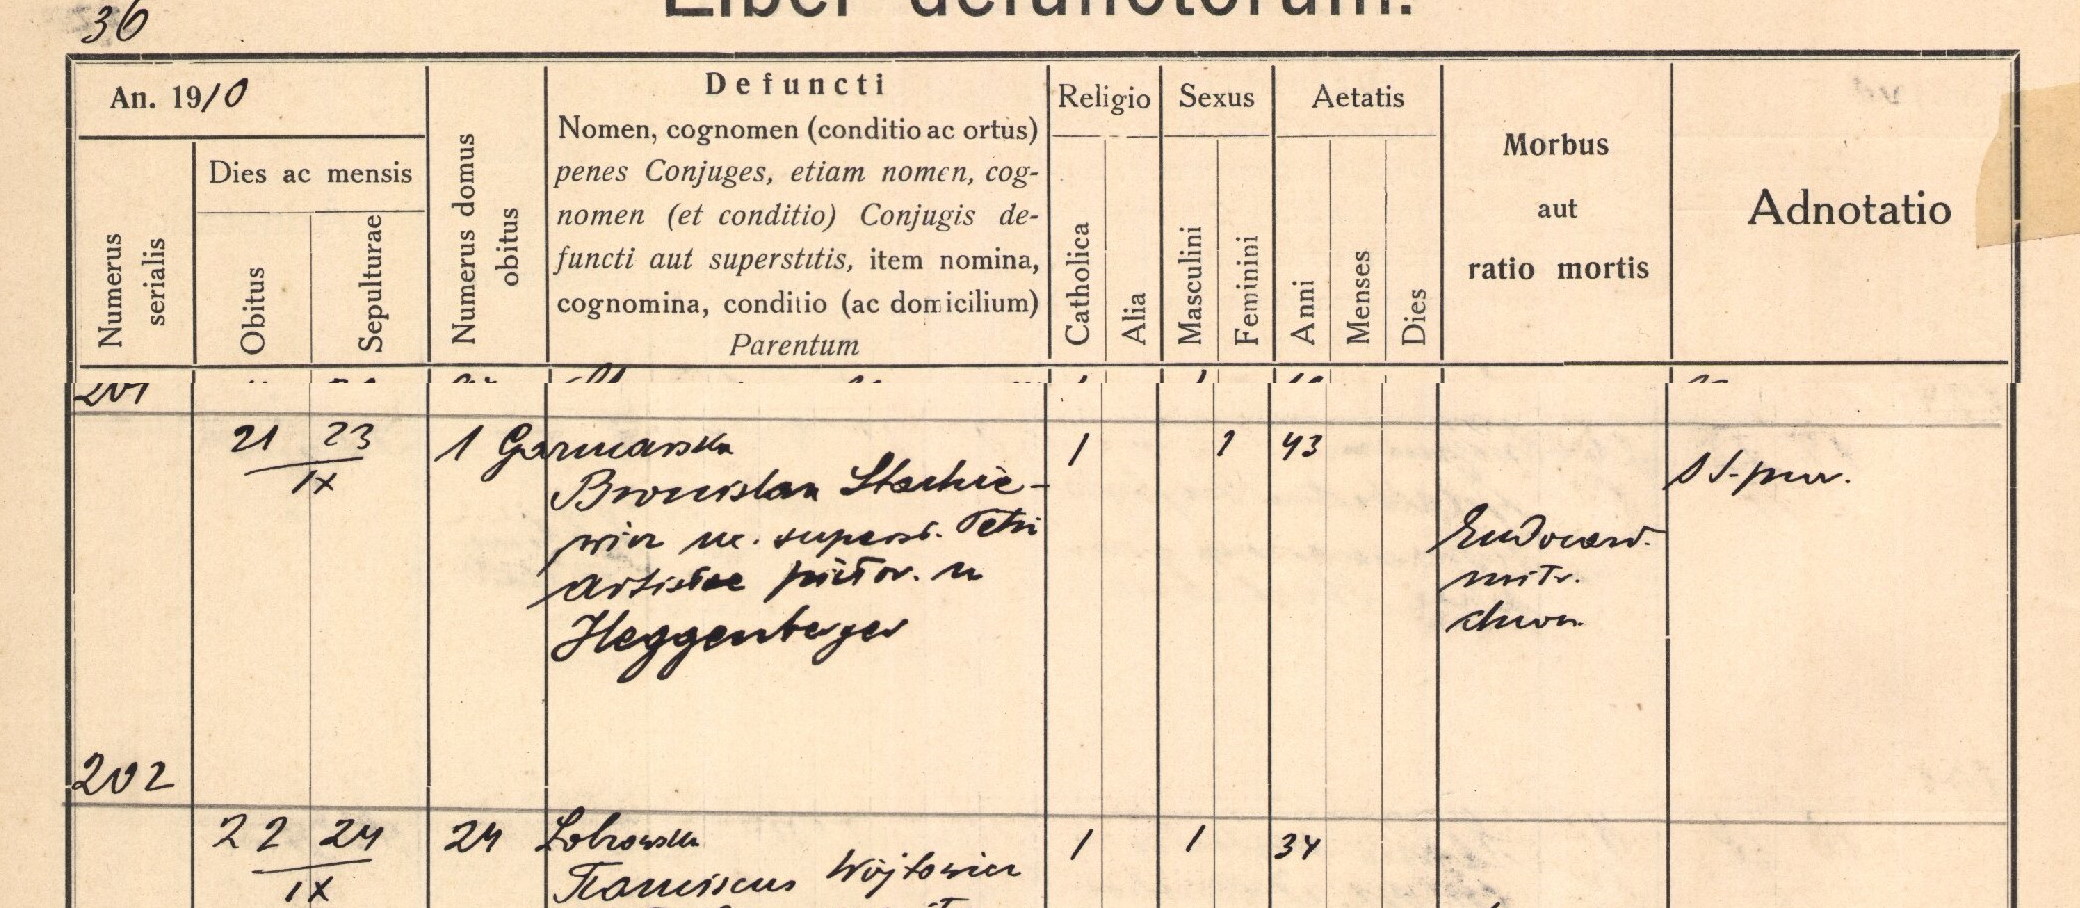 36
Liber defunctorum.
An. 1910
Numerus serialis
Dies ac mensis
Obitus
Sepulturae
Numerus domus obitus
Defuncti
Nomen, cognomen (conditio ac ortus)
penes Conjuges, etiam nomen, cog-
nomen (et conditio) Conjugis de-
functi aut superstitis, item nomina,
cognomina, conditio (ac domicilium)
Parentum
Religio
Catholica
Alia
Sexus
Masculini
Feminini
Aetatis
Anni
Menses
Dies
Morbus
aut
ratio mortis
Adnotatio
201
21 23 1 Garncarska 1 1 43
IX
Bronislava Stachie-
wicz ux. superst. Petri
artistae pictor. n
Heggenberger
Endocard.
mitr.
chron.
202
22 24 24 Lobzowska 1 1 34
IX
Franciscus Wojtowicz